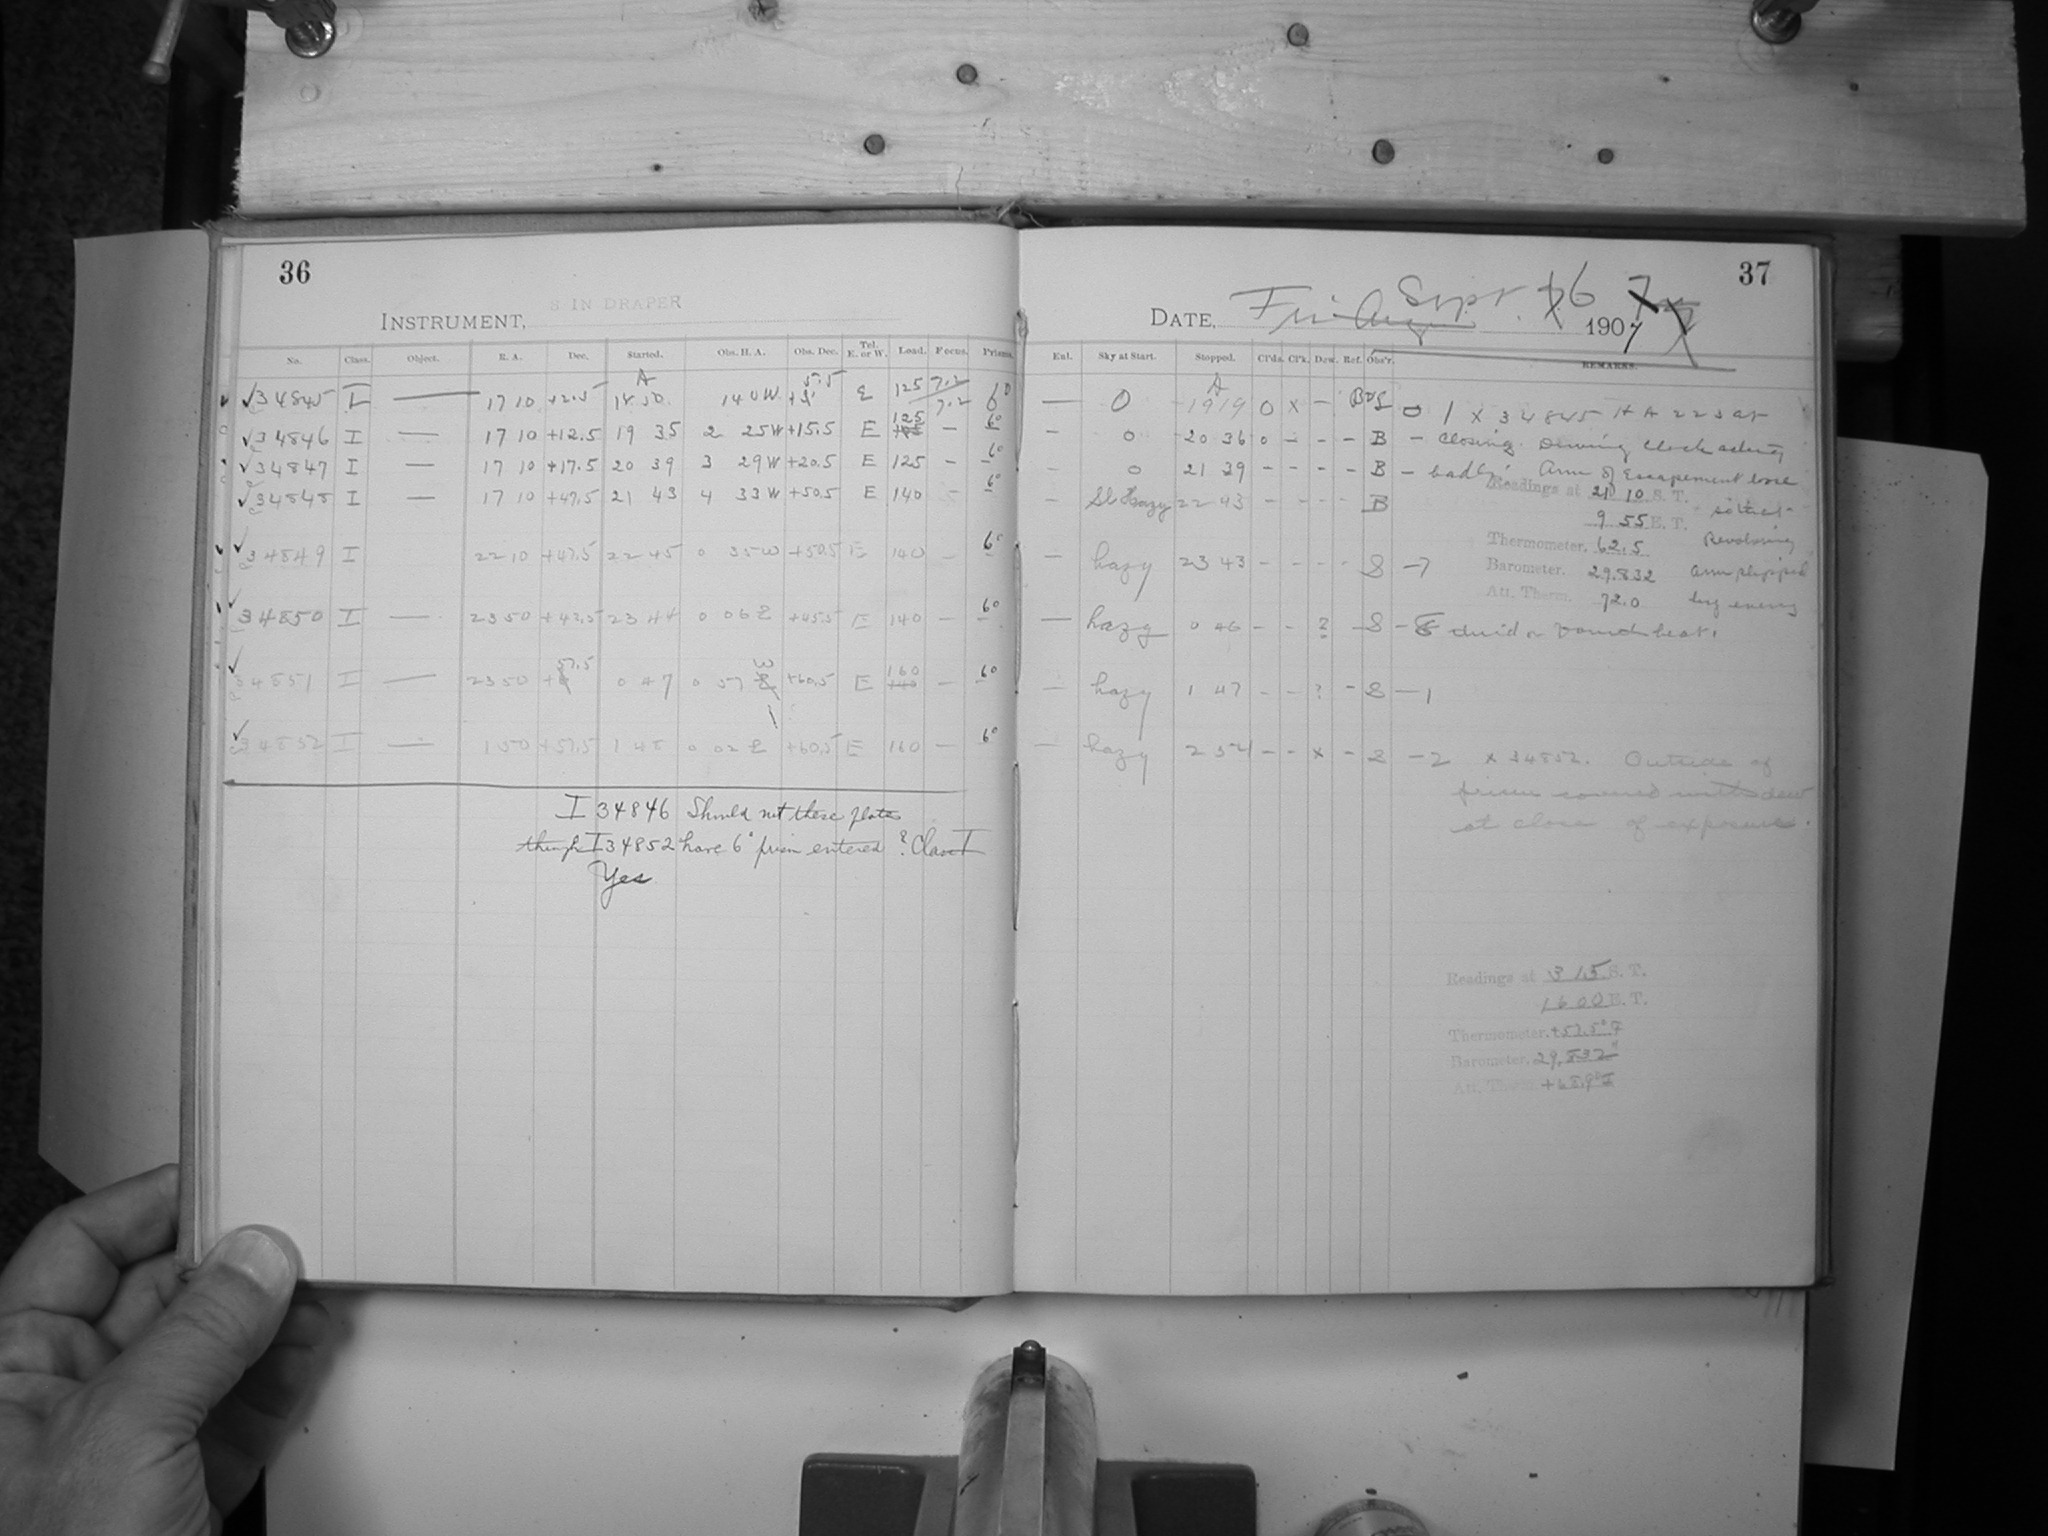 36
8 IN DRAPER
INSTRUMENT,
No. Class. Object. R. A. Dec. Started. Obs. H. A. Obs. Dec. Tel. E. or W. Load. Focus. Prisms.
34845 I — 17 10 +2.5 A 18 50 1 40W 5.5 E 125 7.2 7.2 6°
34846 I — 17 10 +12.5 19 35 2 25W +15.5 E 125 — 6°
34847 I — 17 10 +17.5 20 39 3 29W +20.5 E 125 — 6°
34848 I — 17 10 +47.5 21 43 4 33W +50.5 E 140 — 6°
34849 I 22 10 +47.5 22 45 0 35W +50.5 E 140 — 6°
34850 I — 23 50 +42.5 23 44 0 06E +45.5 E 140 — 6°
34851 I — 23 50 57.5 0 47 0 57 W +60.5 E 160 — 6°
34852 I — 1 50 +57.5 1 48 0 02E +60.5 E 160 — 6°
I 34846 Should not these plates
though I 34852 have 6° prism entered? Class I
Yes
37
DATE, Fri. Sept. 6 1907
Enl. Sky at Start. Stopped. Cl'ds. Cl'k. Dew. Ref. Obs'r. REMARKS.
— 0 A 19 19 0 x — 0 1 x 34845 H A 2 23 at
— 0 20 36 0 - - - B - closing. Driving Clock acting
— 0 21 39 - - - - B - badly. Arm of Escapement loose
— Sl Hazy 22 43 - - - - B
Readings at 21 10 S. T.
9 55 E. T.
Thermometer. 62.5 Revolving
Barometer. 29.832 arm slipped
Att. Therm. 72.0 by every
— hazy 23 43 - - - - S - 7
— hazy 0 46 - - ? - S - 8 third or fourth beat.
— hazy 1 47 - - ? - S - 1
— hazy 2 54 - - x - S - 2 x 34852. Outside of
prism covered with dew
at close of exposure.
Readings at 3 15 S. T.
16 00 E. T.
Thermometer. +57.5° F
Barometer. 29.832"
Att. Therm. +68.9° F